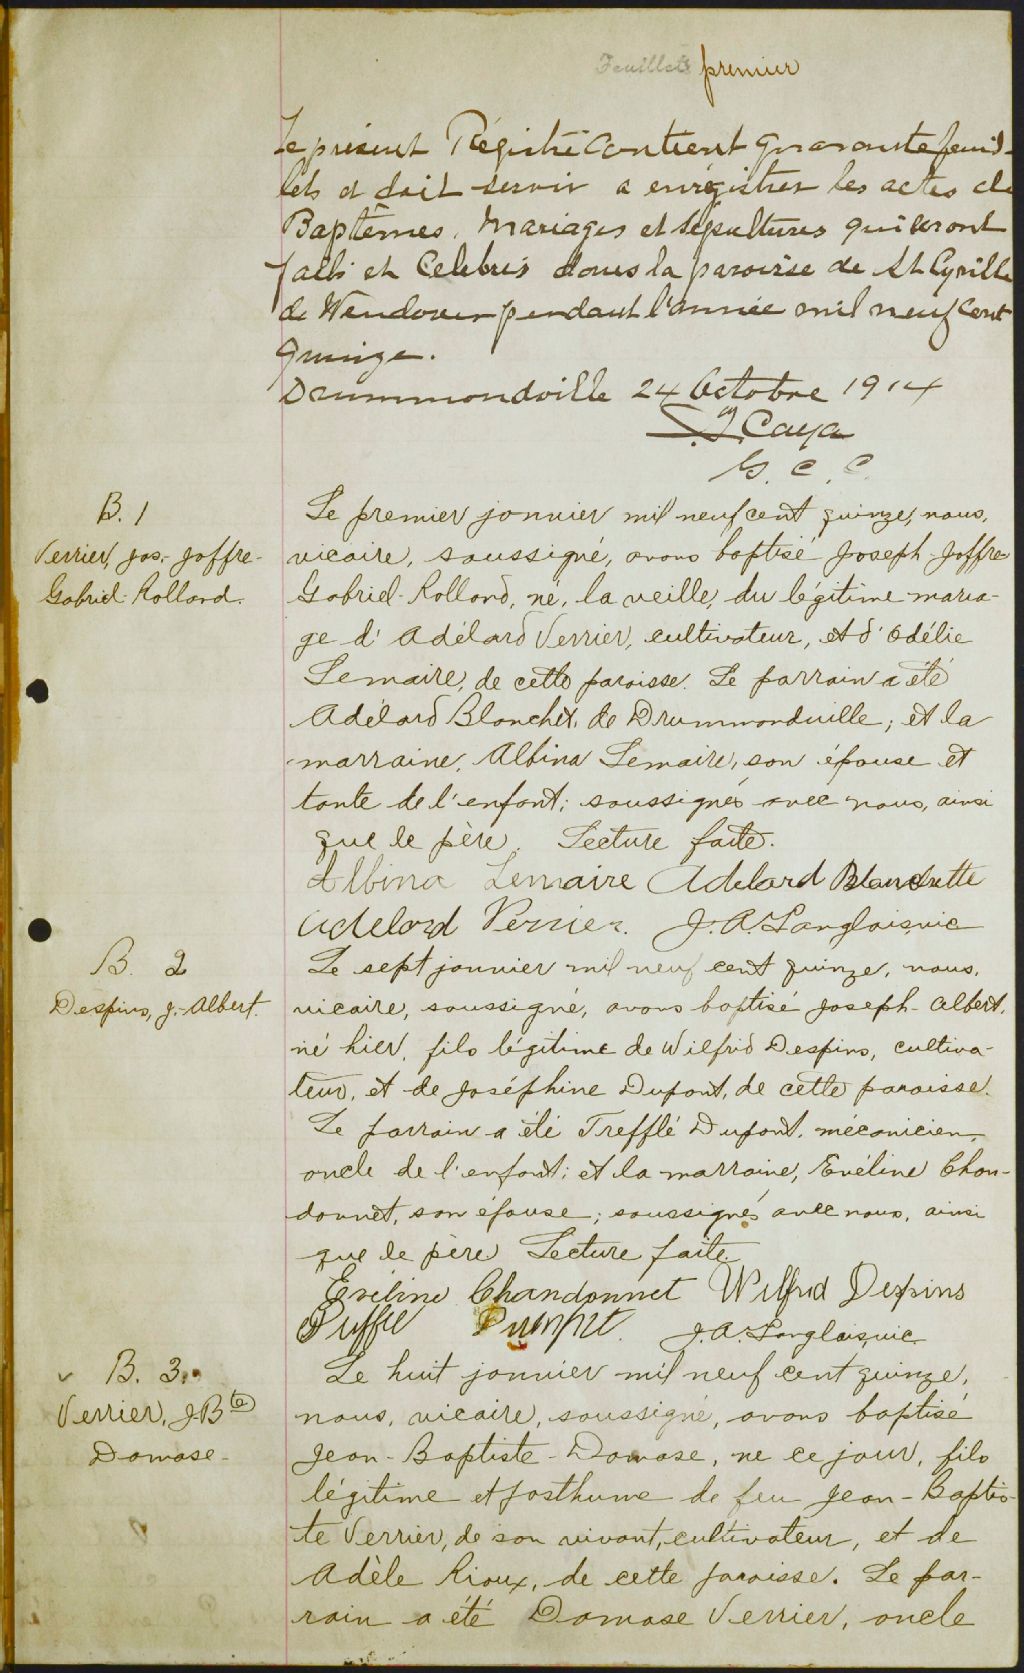 Feuillets premier
Le présent Régistre contient quarante feuil-
lets et doit servir a enrégistrer les actes de
Baptêmes, Mariages et Sépultures qui seront
faits et Celebrés dans la paroisse de St Cyrille
de Wendover pendant l'année mil neuf cent
quinze.
Drummondville 24 Octobre 1914
J Caya
G. C. C.
B. 1
Verrier, Jos.- Joffre-
Gabriel-Rolland.
Le premier janvier mil neuf cent quinze, nous,
vicaire, soussigné, avons baptisé Joseph-Joffre-
Gabriel-Rolland, né, la veille, du légitime maria-
ge d'Adélard Verrier, cultivateur, et d'Odélie
Lemaire, de cette paroisse. Le parrain a été
Adélard Blanchet, de Drummondville; et la
marraine, Albina Lemaire, son épouse et
tante de l'enfant; soussignés avec nous, ainsi
que le père. Lecture faite.
Albina Lemaire Adelard Blanchette
Adelard Verrier. J. A. Langlois, vic
B. 2
Despins, J.-Albert.
Le sept janvier mil neuf cent quinze, nous,
vicaire, soussigné, avons baptisé Joseph-Albert,
né hier, fils légitime de Wilfrid Despins, cultiva-
teur, et de Joséphine Dupont, de cette paroisse.
Le parrain a été Trefflé Dupont, mécanicien,
oncle de l'enfant; et la marraine, Evéline Chan-
donnet, son épouse; soussignés avec nous, ainsi
que le père Lecture faite.
Eveline Chandonnet Wilfrid Despins
J. A. Langlois, vic
B. 3.
Verrier, J.Bte
Damase-
Le huit janvier mil neuf cent quinze,
nous, vicaire, soussigné, avons baptisé
Jean-Baptiste-Damase, né ce jour, fils
légitime et posthume de feu Jean-Baptis-
te Verrier, de son vivant, cultivateur, et de
Adèle Rioux, de cette paroisse. Le par-
rain a été Damase Verrier, oncle